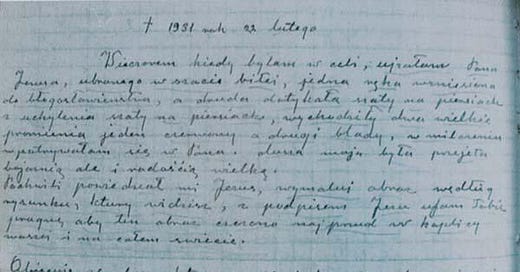 † 1931 rok 22 lutego
Wieczorem kiedy byłam w celi, ujrzałam Pana
Jezusa, ubranego w szacie białej, jedna ręka wzniesiona
do błogosławieństwa, a druga dotykała szaty na piersiach
z uchylenia szaty na piersiach, wychodziły dwa wielkie
promienia jeden czerwony a drugi blady, w milczeniu
wpatrywałam się w Pana, dusza moja była przejęta
bojaźnią ale i radością wielką.
Po chwili powiedział mi Jezus, wymaluj obraz według
rysunku, który widzisz, z podpisem Jezu ufam Tobie
pragnę, aby ten obraz czczono najprzód w kaplicy
waszej i na całem świecie.